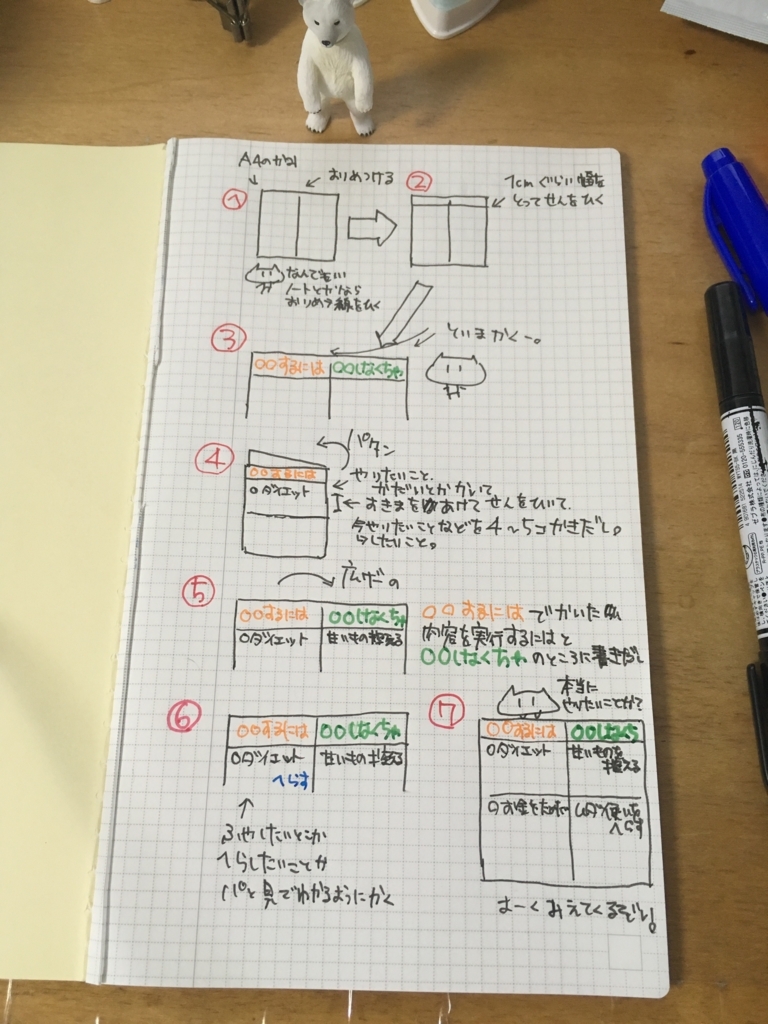 A4のかみ
おりめつける
①
②
1cmぐらい幅を
とってせんをひく
なんでもいい
ノートとかなら
おりめか線をひく
③
といまかくー。
〇〇するには
〇〇しなくちゃ
④
パタン
〇〇するには
○ダイエット
やりたいこと、
かだいとかかいて
すきまをあけてせんをひいて、
今やりたいことなどを4〜5コかきだし。
したいこと。
⑤
広げるの
〇〇するには
〇〇しなくちゃ
○ダイエット
甘いもの控える
〇〇するにはでかいた
内容を実行するにはと
〇〇しなくちゃのところに書きだし
⑥
〇〇するには
〇〇しなくちゃ
○ダイエット
甘いもの控える
へらす
ふやしたいことか
へらしたいことか
パと見でわかるようにかく
⑦
本当に
やりたいことか?
〇〇するには
〇〇しなくち
○ダイエット
甘いものを
控える
○お金をためる
ムダ使いを
へらす
よーくみえてくるぞい!
ゼブラ株式会社
0120-555335